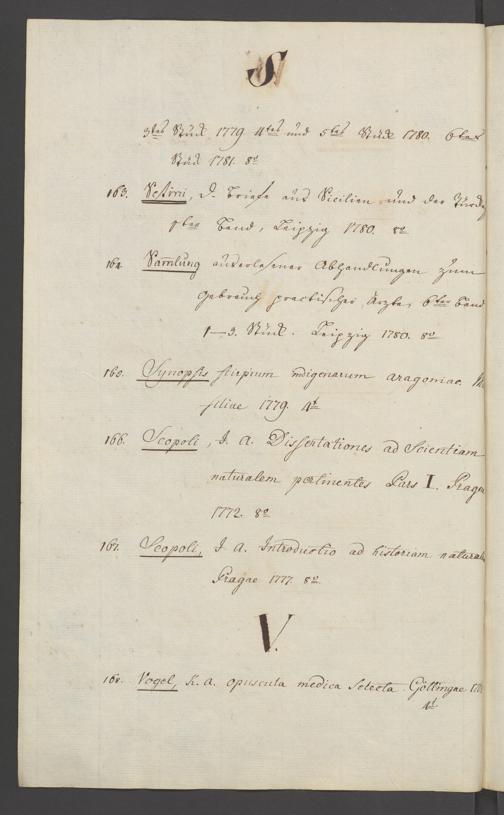 S
3tes Stück 1779 4tes und 5tes Stück 1780. 6tes
Stück 1781. 8o
163. Sestini, D. Briefe aus Sicilien und der Türckey
Band, Leipzig 1780. 8o
164 Sammlung auserlesener Abhandlungen zum
Gebrauch practischer Ärzte, 6ter Band
1–3. Stück. Leipzig 1780. 8o
165. Synopsis stirpium indigenarum aragoniae.
siliae 1779. 4t
166. Scopoli, I. A. Dissertationes ad Scientiam
naturalem pertinentes Pars I. Pragae
1772. 8o
167. Scopoli, I. A. Introductio ad historiam natural
Pragae 1777. 8o
V.
168. Vogel, R. A. opuscula medica selecta. Göttingae
4t